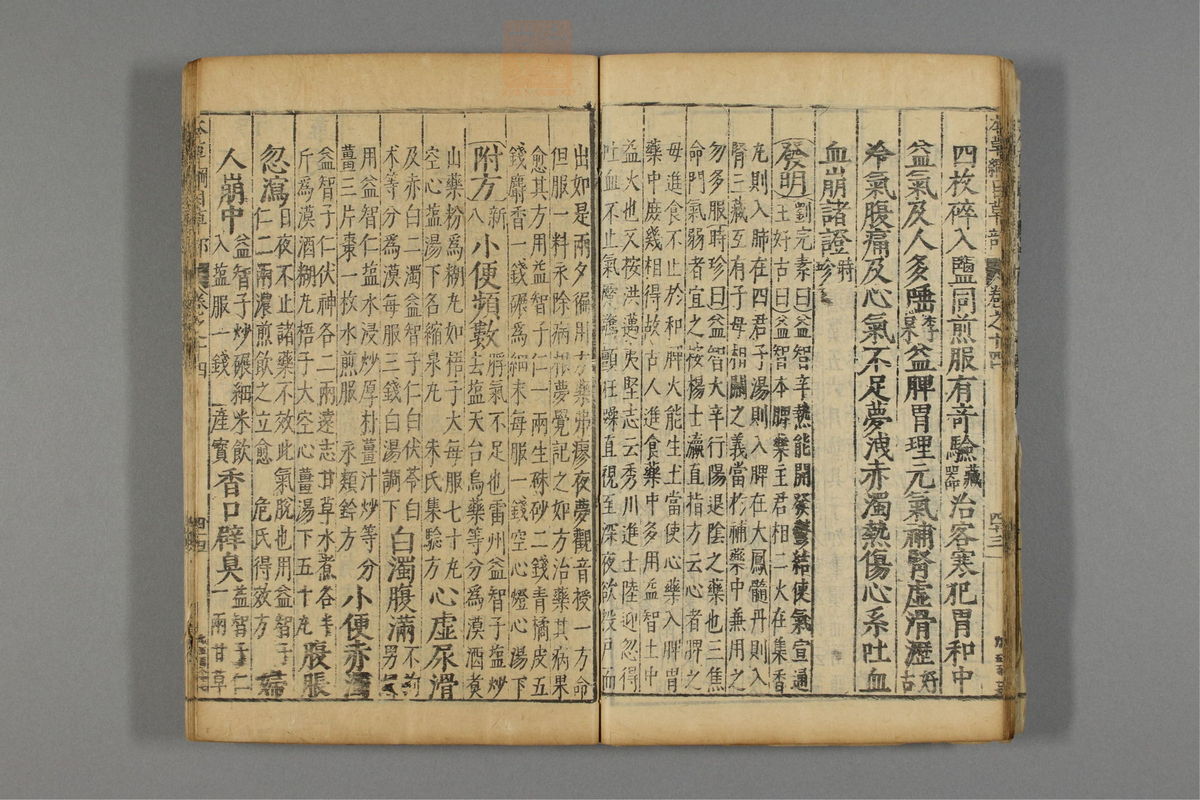 四枚碎入鹽同煎服有奇驗藏器治客寒犯胃和中
益氣及人多唾李杲益脾胃理元氣補腎虛滑瀝好古
冷氣腹痛及心氣不足夢洩赤濁熱傷心系吐血
血崩諸證時珍
發明劉完素曰益智辛熱能開發鬱結使氣宣通
王好古曰益智本脾藥主君相二火在集香
丸則入肺在四君子湯則入脾在大鳳髓丹則入
腎三藏互有子母相關之義當於補藥中兼用之
勿多服時珍曰益智大辛行陽退陰之藥也三焦
命門氣弱者宜之按楊士瀛直指方云心者脾之
母進食不止於和脾火能生土當使心藥入脾胃
藥中庶幾相得故古人進食藥中多用益智土中
益火也又按洪邁夷堅志云秀川進士陸迎忽得
吐血不止氣蹷驚顫狂躁直視至深夜欲投戶而
出如是兩夕徧用方藥弗瘳夜夢觀音授一方命
但服一料永除病根夢覺記之如方治藥其病果
愈其方用益智子仁一兩生硃砂二錢青橘皮五
錢麝香一錢碾爲細末每服一錢空心燈心湯下
附方新八小便頻數脬氣不足也雷州益智子鹽炒
去鹽天台烏藥等分爲漠酒煮
山藥粉爲糊丸如梧子大每服七十丸
空心鹽湯下名縮泉丸 朱氏集驗方心虛尿滑
及赤白二濁益智子仁白伏苓白
术等分爲漠每服三錢白湯調下白濁腹滿不拘
男女
用益智仁鹽水浸炒厚朴薑汁炒等分
薑三片棗一枚水煎服 永類鈐方小便赤濁
益智子仁伏神各二兩遠志甘草水煮各半
斤爲漠酒糊丸梧子大空心薑湯下五十丸腹脹
忽瀉日夜不止諸藥不效此氣脫也用益智子
仁二兩濃煎飲之立愈 危氏得效方婦
人崩中益智子炒碾細米飲
入鹽服一錢 產寶香口辟臭益智子仁
一兩甘草
卷之十四